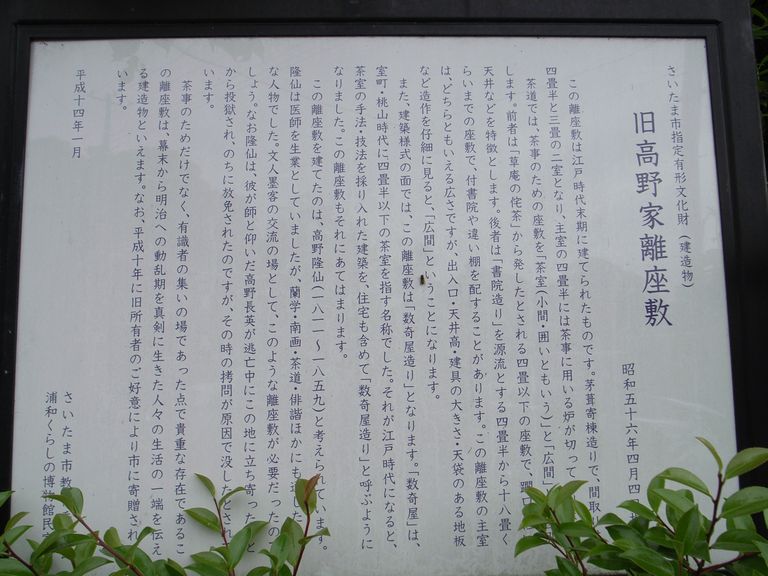 さいたま市指定有形文化財(建造物)
旧高野家離座敷
昭和五十六年四月四
この離座敷は江戸時代末期に建てられたものです。茅葺寄棟造りで、間取り
四畳半と三畳の二室となり、主室の四畳半には茶事に用いる炉が切って
茶道では、茶事のための座敷を「茶室(小間・囲いともいう)」と「広間」
します。前者は「草庵の侘茶」から発したとされる四畳以下の座敷で、躙口
天井などを特徴とします。後者は「書院造り」を源流とする四畳半から十八畳く
らいまでの座敷で、付書院や違い棚を配することがあります。この離座敷の主室
は、どちらともいえる広さですが、出入口・天井高・建具の大きさ・天袋のある地板
など造作を仔細に見ると、「広間」ということになります。
また、建築様式の面では、この離座敷は「数奇屋造り」となります。「数奇屋」は、
室町・桃山時代に四畳半以下の茶室を指す名称でした。それが江戸時代になると、
茶室の手法・技法を採り入れた建築を、住宅も含めて「数奇屋造り」と呼ぶように
なりました。この離座敷もそれにあてはまります。
この離座敷を建てたのは、高野隆仙(一八一一〜一八五九)と考えられています。
隆仙は医師を生業としていましたが、蘭学・南画・茶道・俳諧ほかにも
な人物でした。文人墨客の交流の場として、このような離座敷が必要だったの
しょう。なお隆仙は、彼が師と仰いだ高野長英が逃亡中にこの地に立ち寄った
から投獄され、のちに放免されたのですが、その時の拷問が原因で没したとされ
います。
茶事のためだけでなく、有識者の集いの場であった点で貴重な存在であるこ
の離座敷は、幕末から明治への動乱期を真剣に生きた人々の生活の一端を伝え
る建造物といえます。なお、平成十年に旧所有者のご好意により市に寄贈され
います。
平成十四年一月
さいたま市教
浦和くらしの博物館民